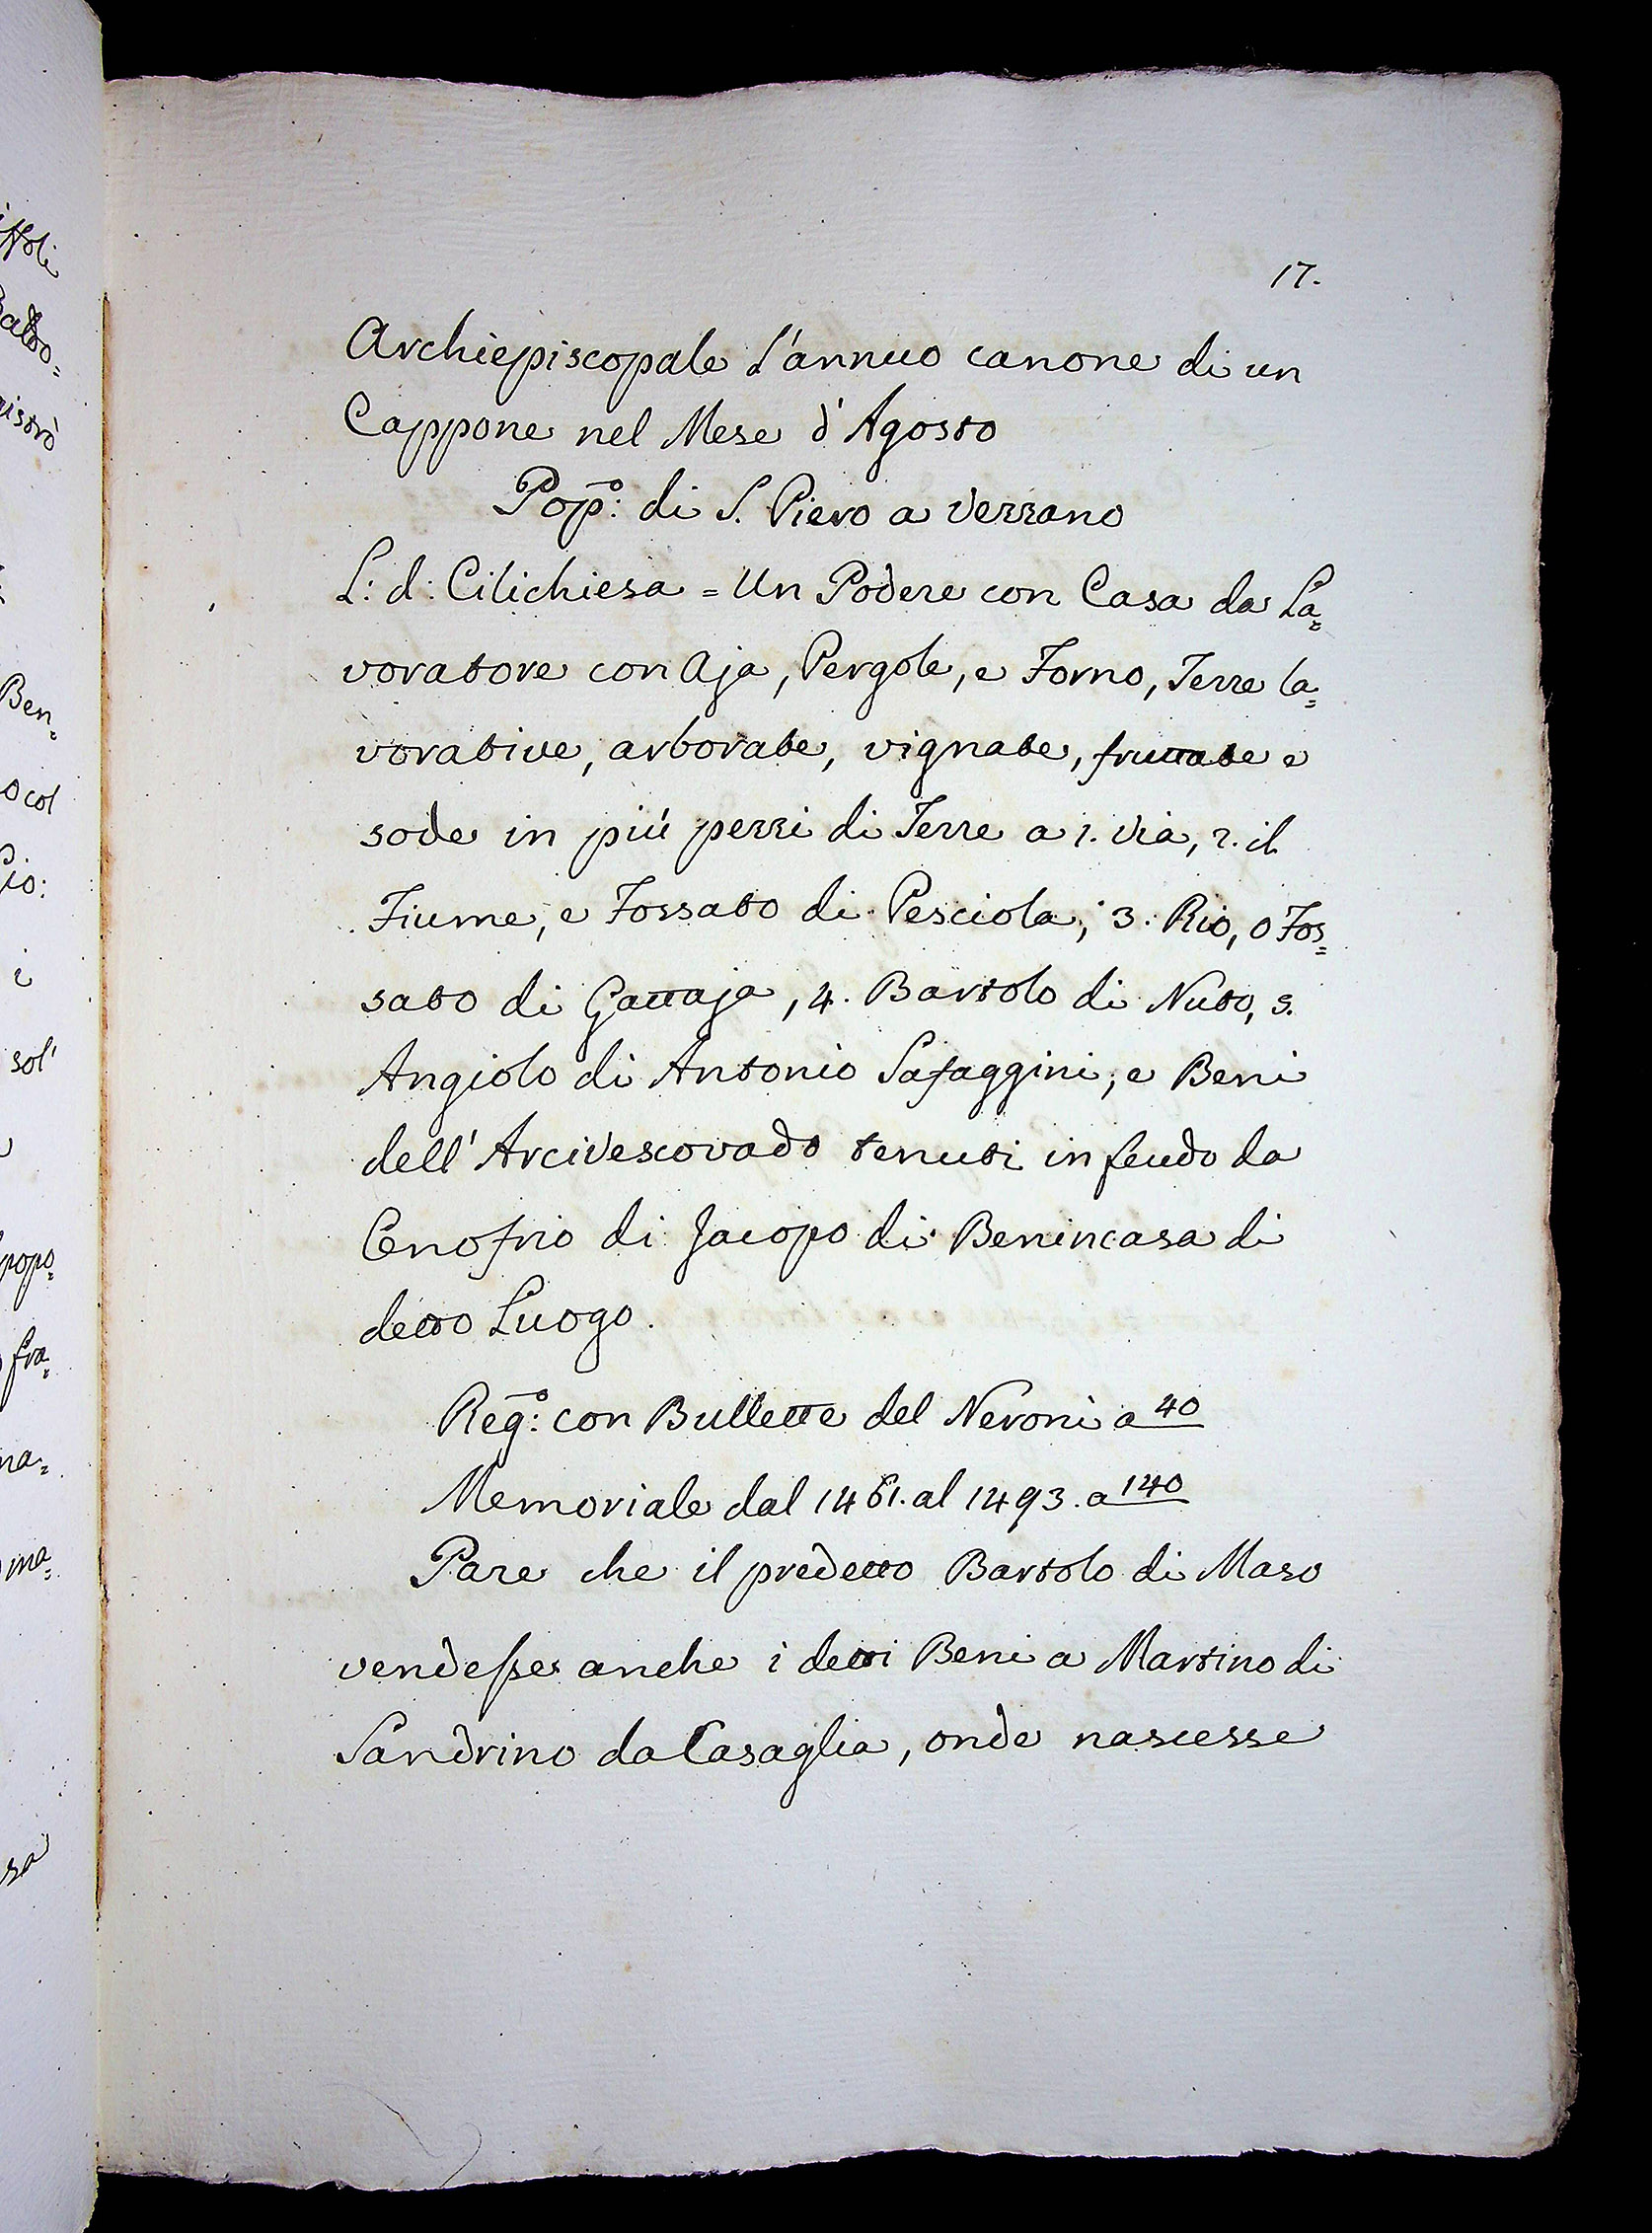 17.
Archiepiscopale l'annuo canone di un
Cappone nel Mese d'Agosto
Pop:º di S. Piero a Vezzano
L: d: Cilichiesa = Un Podere con Casa da La=
voratore con Aja, Pergole, e Forno, Terre la=
vorative, arborate, vignate, fruttate e
sode in più pezzi di Terre a 1. Via, 2. il
Fiume, e Fossato di Pesciola, 3. Rio, o Fos=
sato di Gattaja, 4. Bartolo di Nuto, 5.
Angiolo di Antonio Safaggini, e Beni
dell'Arcivescovado tenuti in feudo da
Cenofrio di Jacopo di Benincasa di
detto Luogo.
Reg:º con Bullette del Neroni a 40
Memoriale dal 1461. al 1493. a 140
Pare che il predetto Bartolo di Maso
vendesse anche i detti Beni a Martino di
Sandrino da Casaglia, onde nascesse